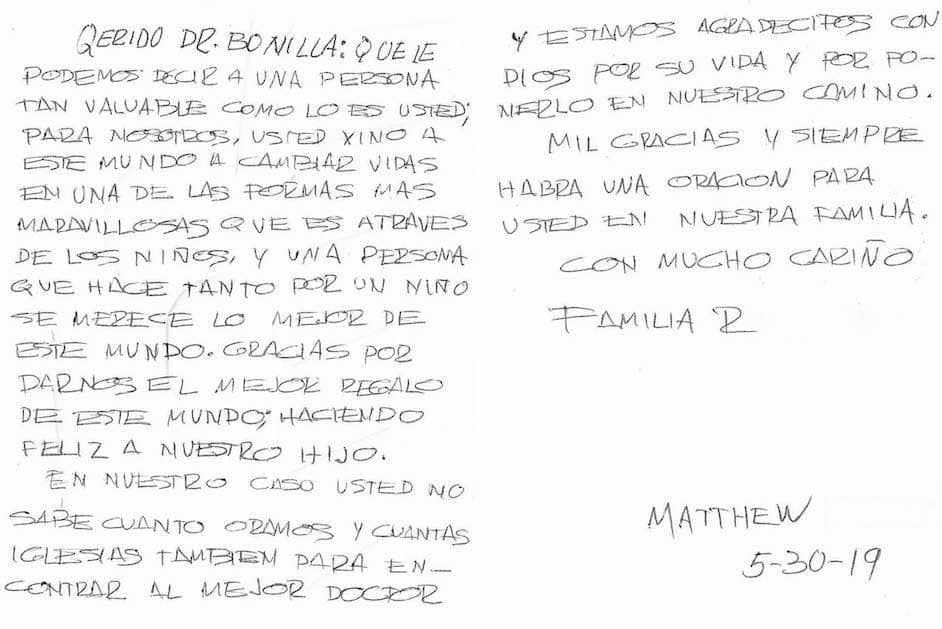 QERIDO DR. BONILLA: QUE LE
PODEMOS DECIR A UNA PERSONA
TAN VALUABLE COMO LO ES USTED;
PARA NOSOTROS, USTED XINO A
ESTE MUNDO A CAMBIAR VIDAS
EN UNA DE LAS FORMAS MAS
MARAVILLOSAS QUE ES ATRAVES
DE LOS NIÑOS, Y UNA PERSONA
QUE HACE TANTO POR UN NIÑO
SE MERECE LO MEJOR DE
ESTE MUNDO. GRACIAS POR
DARNOS EL MEJOR REGALO
DE ESTE MUNDO; HACIENDO
FELIZ A NUESTRO HIJO.
EN NUESTRO CASO USTED NO
SABE CUANTO ORAMOS Y CUANTAS
IGLESIAS TAMBIEN PARA EN-
CONTRAR AL MEJOR DOCTOR
Y ESTAMOS AGRADECIDOS CON
DIOS POR SU VIDA Y POR PO-
NERLO EN NUESTRO CAMINO.
MIL GRACIAS Y SIEMPRE
HABRA UNA ORACION PARA
USTED EN NUESTRA FAMILIA.
CON MUCHO CARIÑO
FAMILIA R
MATTHEW
5-30-19